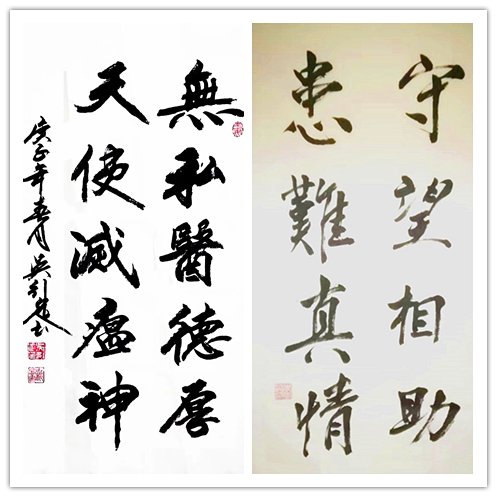 無私醫德厚
天使滅瘟神
庚子年春月吳引
守望相助
患難真情